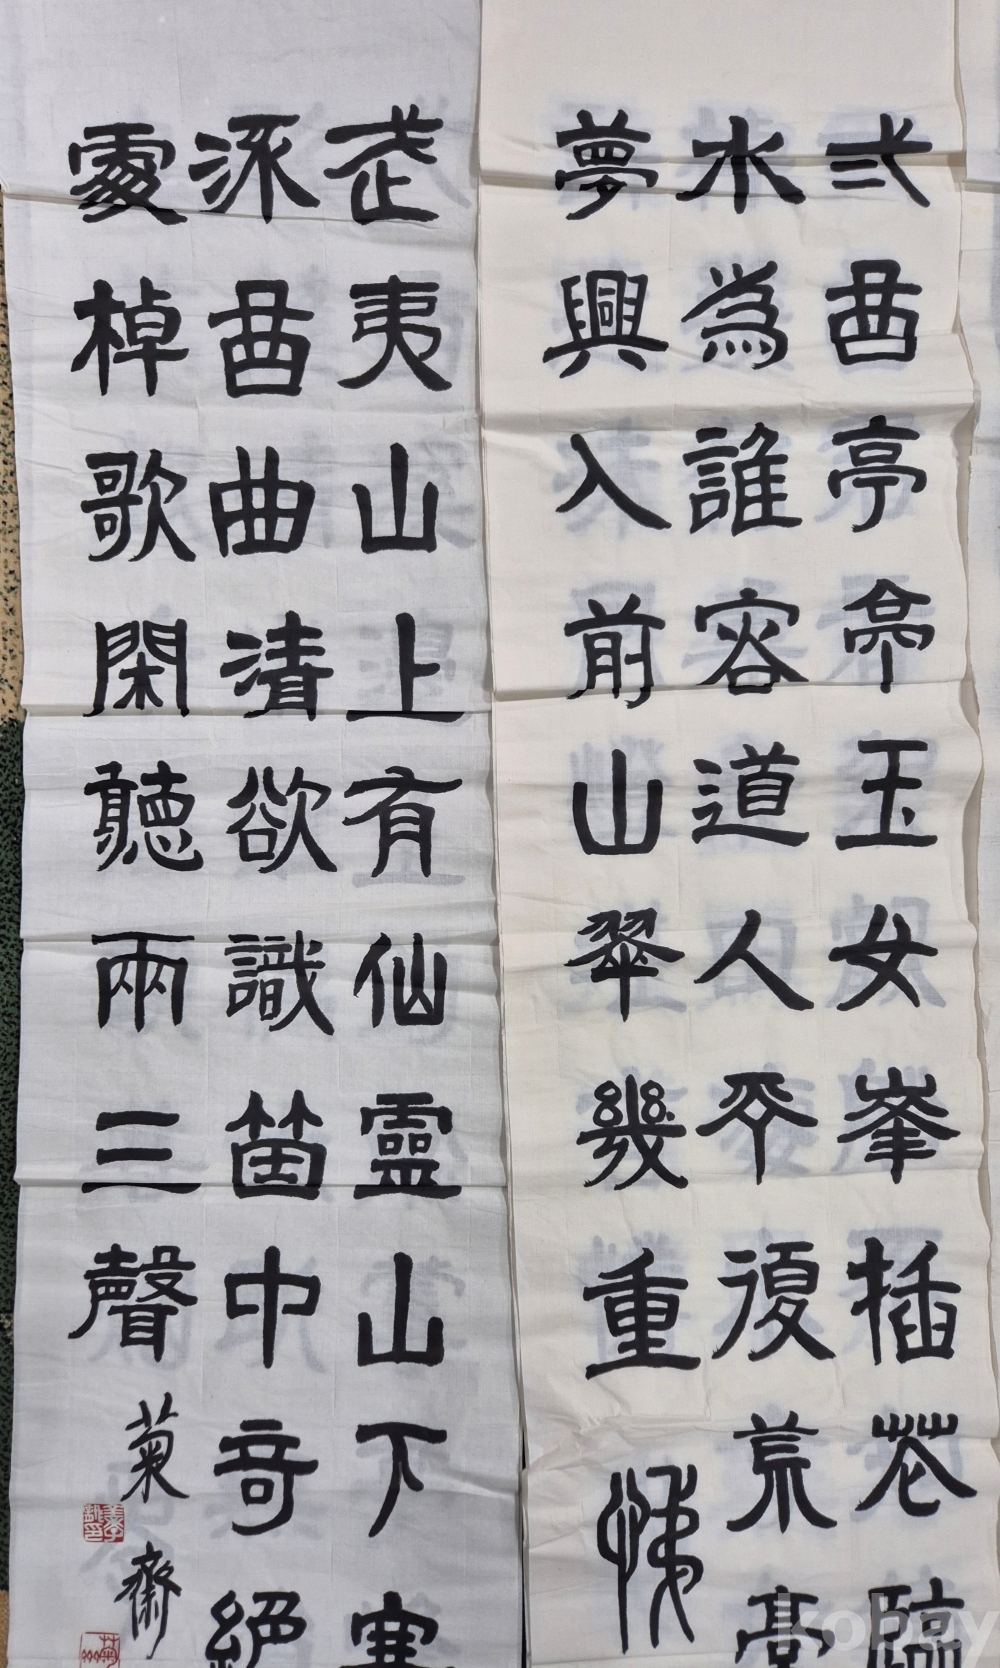 弍曲亭亭玉女峯插花臨
水為誰容道人不復荒臺
夢興入前山翠幾重
武夷山上有仙靈山下寒
流曲曲清欲識箇中奇絕
處棹歌閑聽兩三聲
菊齋
kobay